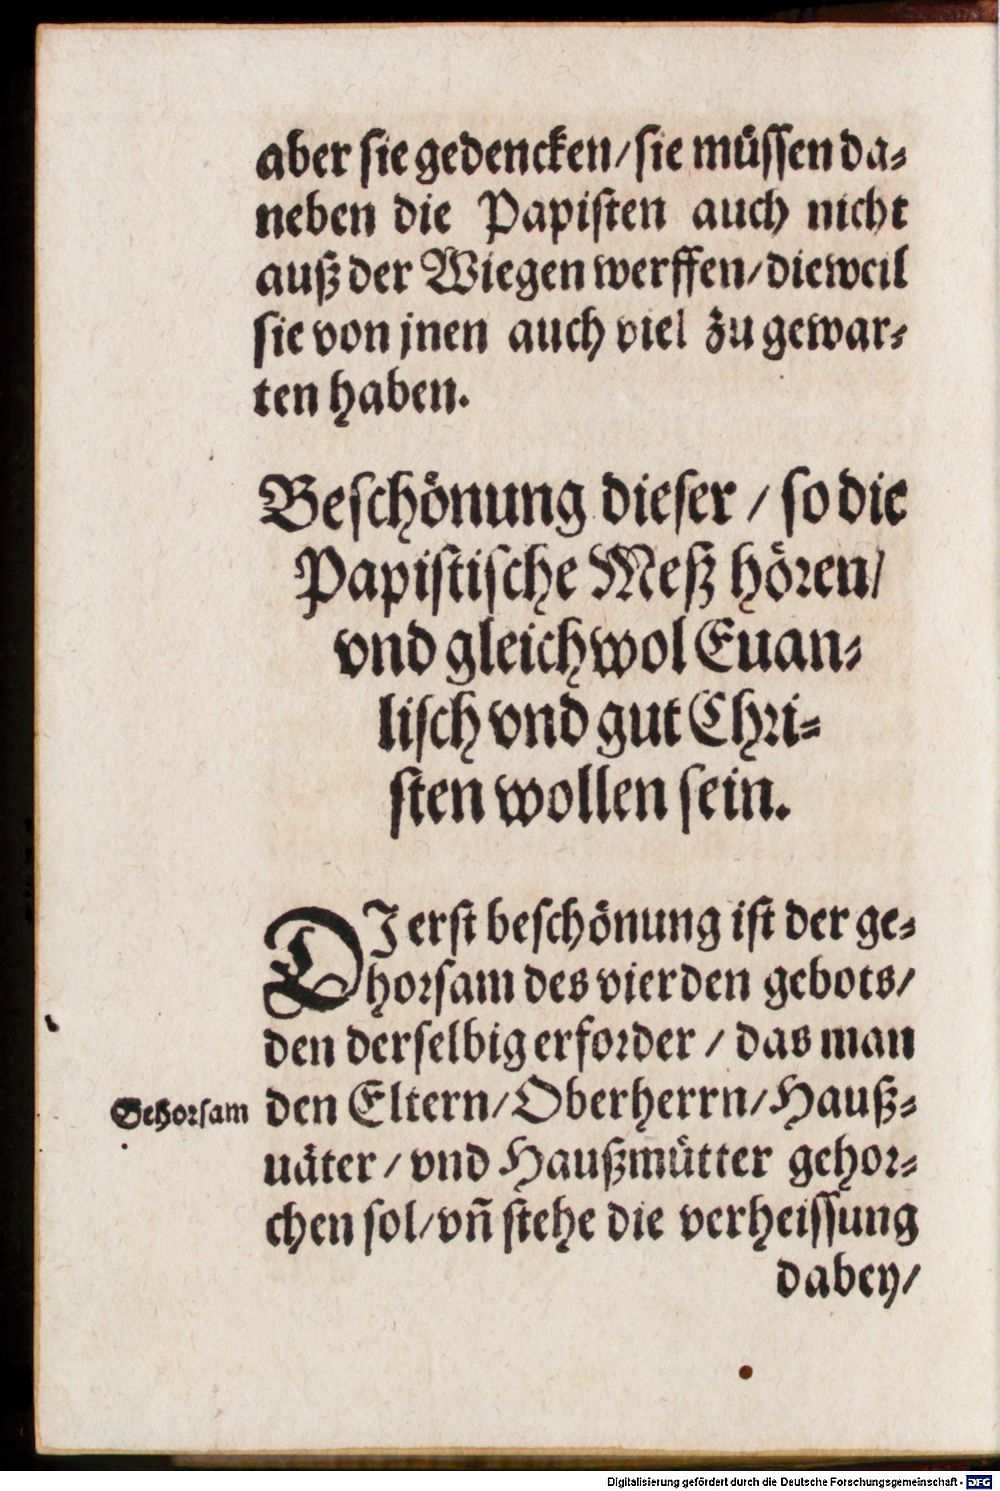 aber sie gedencken/sie müssen da-
neben die Papisten auch nicht
auß der Wiegen werffen/dieweil
sie von jnen auch viel zu gewar-
ten haben.
Beschönung dieser / so die
Papistische Meß hören/
vnd gleichwol Euan-
lisch vnd gut Chri-
sten wollen sein.
DJ erst beschönung ist der ge-
horsam des vierden gebots/
den derselbig erforder / das man
Gehorsam den Eltern/Oberherrn/Hauß-
uäter / vnd Haußmütter gehor-
chen sol/vn̄ stehe die verheissung
dabey/
Digitalisierung gefördert durch die Deutsche Forschungsgemeinschaft - DFG